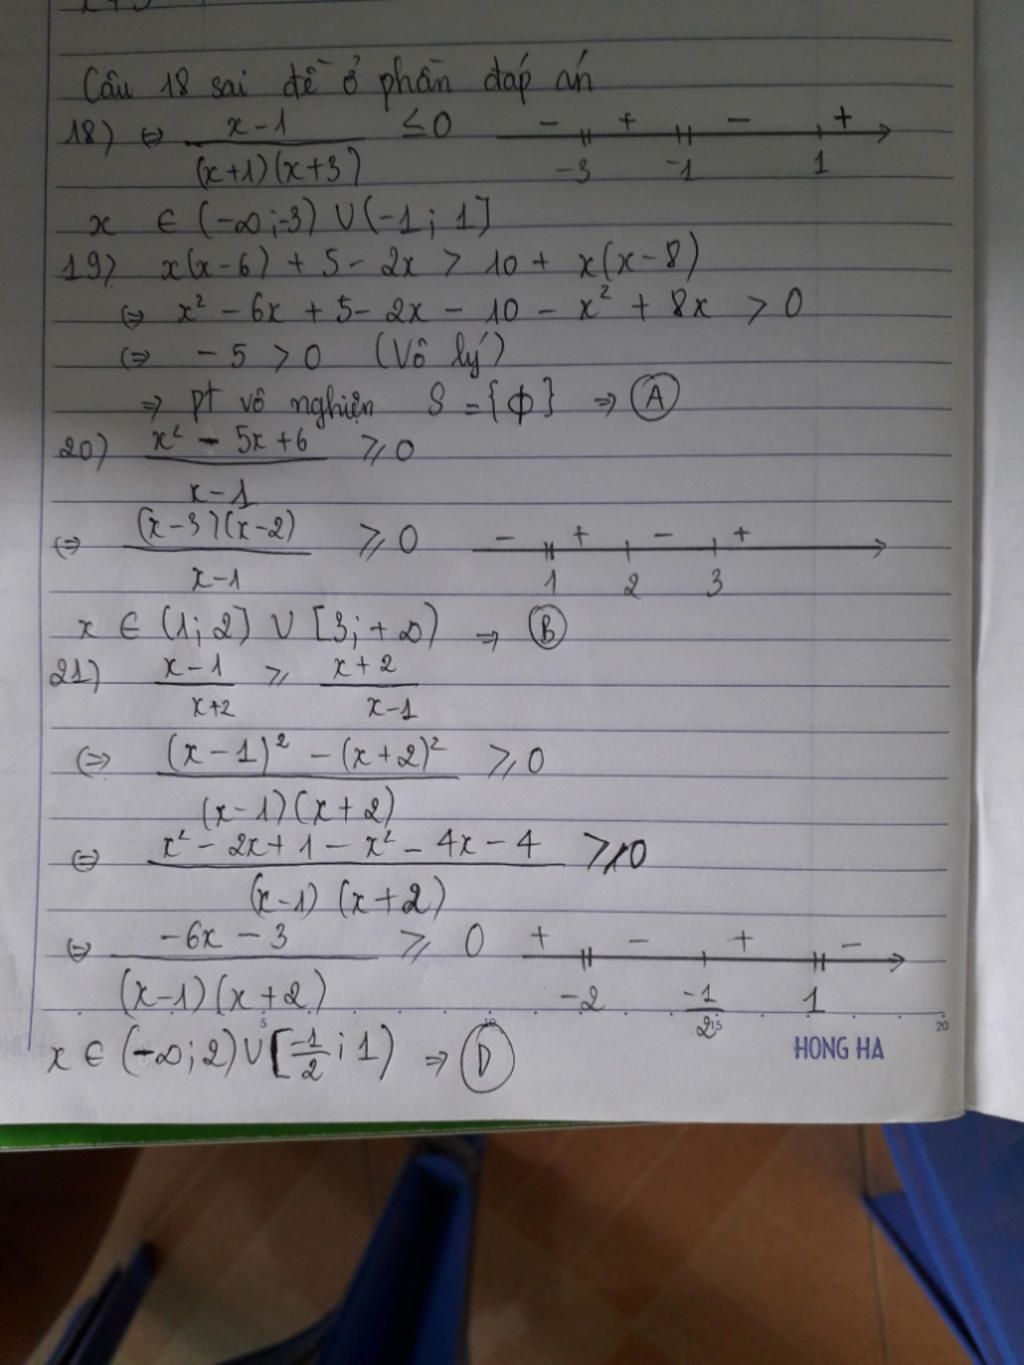 Câu 18 sai đề ở phần đáp án
18) ⇔ (x-1)/((x+1)(x+3)) ≤ 0   - + - +   -3 -1 1
x ∈ (-∞;-3) ∪ (-1; 1]
19) x(x-6) + 5 - 2x > 10 + x(x-8)
⇔ x² - 6x + 5 - 2x - 10 - x² + 8x > 0
⇔ - 5 > 0 (Vô lý)
⇒ pt vô nghiện S = {ϕ} ⇒ A
20) (x² - 5x + 6)/(x-1) ≥ 0
⇔ ((x-3)(x-2))/(x-1) ≥ 0   - + - +   1 2 3
x ∈ (1; 2] ∪ [3; +∞) ⇒ B
21) (x-1)/(x+2) ≥ (x+2)/(x-1)
⇔ ((x-1)² - (x+2)²)/((x-1)(x+2)) ≥ 0
⇔ (x² - 2x + 1 - x² - 4x - 4)/((x-1)(x+2)) ≥ 0
⇔ (-6x - 3)/((x-1)(x+2)) ≥ 0   + - + -   -2 -1/2 1
5 10 15 20
x ∈ (-∞; 2) ∪ [-1/2; 1) ⇒ D
HONG HA